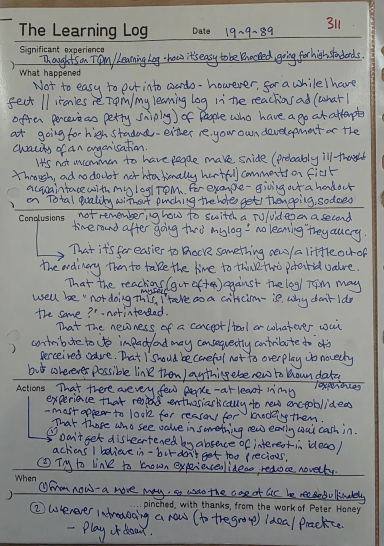 311
The Learning Log Date 19-9-89
Significant experience
Thoughts on TQM/Learning Log - how it's easy to be knocked, going for high standards.
What happened
Not to easy to put into words - however, for a while I have
felt // ities re TQM/my learning log in the reactions and (what I
often perceive as petty sniping) of people who have a go at attempts
at going for high standards - either re your own development or the
quality of an organisation.
It's not uncommon to have people make snide (probably ill-thought
through, and no doubt not intentionally hurtful) comments on first
acquaintance with my log/TQM. For example - giving out a handout
on Total Quality without punching the holes
Conclusions not remembering how to switch a TV/video on a second
time round after going thro' my log! - no learning they all cry.
That it's far easier to knock something new/a little out of
the ordinary than to take the time to think thro' potential value.
That the reactions (gut often) against the log/TQM may
well be "not doing this myself, I take as a criticism - ie. why don't I do
the same?" - not intended.
That the newness of a concept/tool or whatever will
contribute to its impact and may consequently contribute to its
perceived value. That I should be careful not to overplay its novelty
but wherever possible link them/anything else new to known data
/experiences
Actions That there are very few people - at least in my
experience that respond enthusiastically to new concepts/ideas
- most appear to look for reasons for knocking them.
That those who see value in something new early will cash in.
① Don't get disheartened by absence of interest in ideas/
actions I believe in - but don't get too precious.
② Try to link to known experiences/ideas, reduce novelty.
When
① From now - a more may, as was the case at be
...pinched, with thanks, from the work of Peter Honey
② Whenever introducing a new (to the group) idea/practice.
- Play it down.